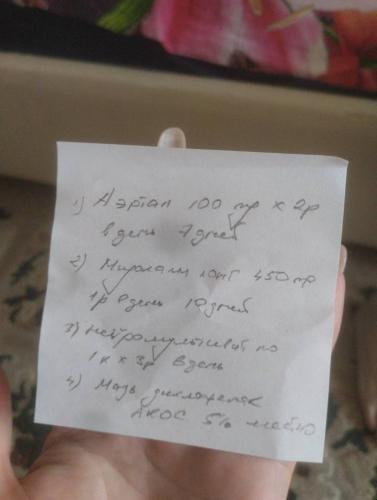 1) Аэртал 100 мг х 2р
в день 7 дней
2) лонг 450 мг
1р в день 10 дней
3) Нейромультивит по
1к х 3р в день
4) Мазь диклофенак
АКОС 5%